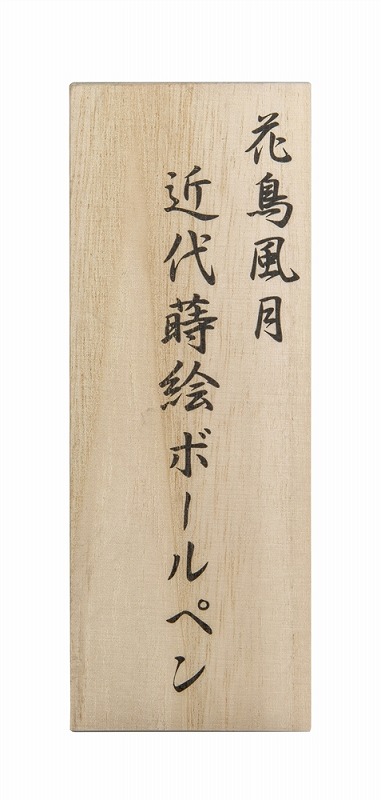 花鳥風月
近代蒔絵ボールペン